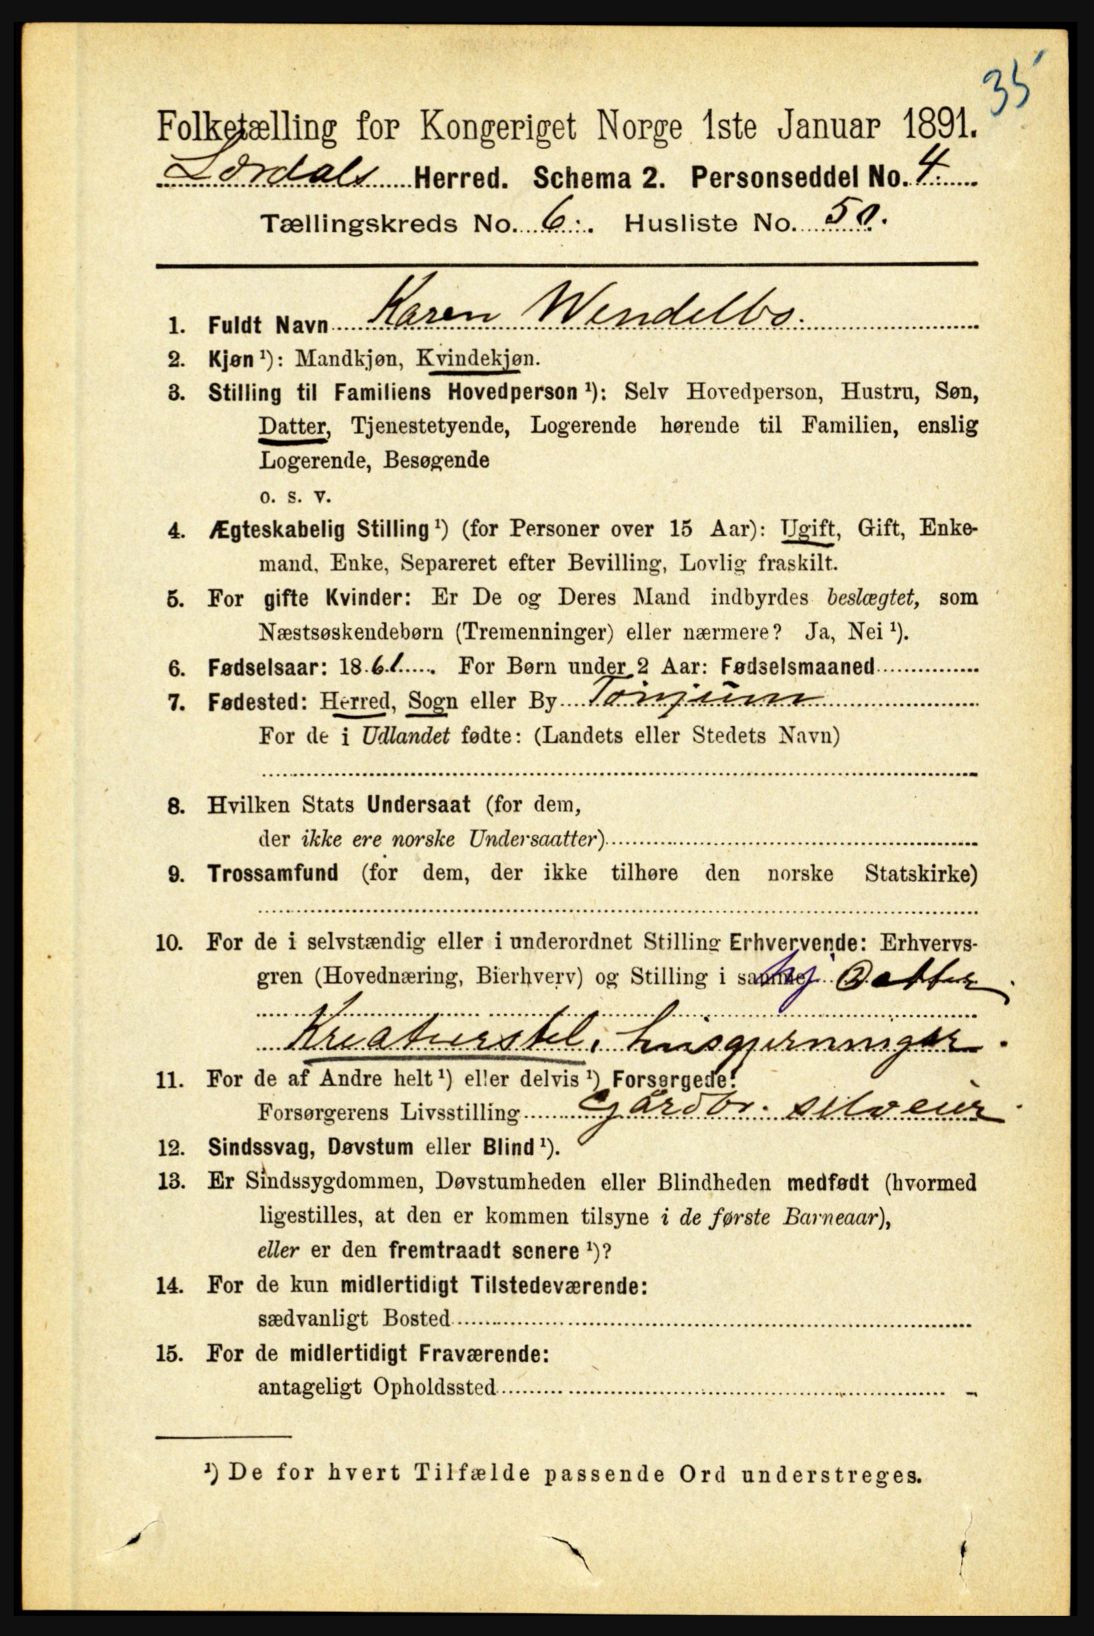 35
Folketælling for Kongeriget Norge 1ste Januar 1891.
Lærdals Herred. Schema 2. Personseddel No. 4.
Tællingskreds No. 6. Husliste No. 50.
1. Fuldt Navn Karen Wendelbo.
2. Kjøn ¹): Mandkjøn, Kvindekjøn.
3. Stilling til Familiens Hovedperson ¹): Selv Hovedperson, Hustru, Søn,
Datter, Tjenestetyende, Logerende hørende til Familien, enslig
Logerende, Besøgende
o. s. v.
4. Ægteskabelig Stilling ¹) (for Personer over 15 Aar): Ugift, Gift, Enke-
mand, Enke, Separeret efter Bevilling, Lovlig fraskilt.
5. For gifte Kvinder: Er De og Deres Mand indbyrdes beslægtet, som
Næstsøskendebørn (Tremenninger) eller nærmere? Ja, Nei ¹).
6. Fødselsaar: 1861. For Børn under 2 Aar: Fødselsmaaned
7. Fødested: Herred, Sogn eller By Tønjum
For de i Udlandet fødte: (Landets eller Stedets Navn)
8. Hvilken Stats Undersaat (for dem,
der ikke ere norske Undersaatter)
9. Trossamfund (for dem, der ikke tilhøre den norske Statskirke)
10. For de i selvstændig eller i underordnet Stilling Erhvervende: Erhvervs-
gren (Hovednæring, Bierhverv) og Stilling i samme hj Datter
Kreaturstel, husgjerninger.
11. For de af Andre helt ¹) eller delvis ¹) Forsørgede:
Forsørgerens Livsstilling Gårdbr. selveier.
12. Sindssvag, Døvstum eller Blind ¹).
13. Er Sindssygdommen, Døvstumheden eller Blindheden medfødt (hvormed
ligestilles, at den er kommen tilsyne i de første Barneaar),
eller er den fremtraadt senere ¹)?
14. For de kun midlertidigt Tilstedeværende:
sædvanligt Bosted
15. For de midlertidigt Fraværende:
antageligt Opholdssted
¹) De for hvert Tilfælde passende Ord understreges.